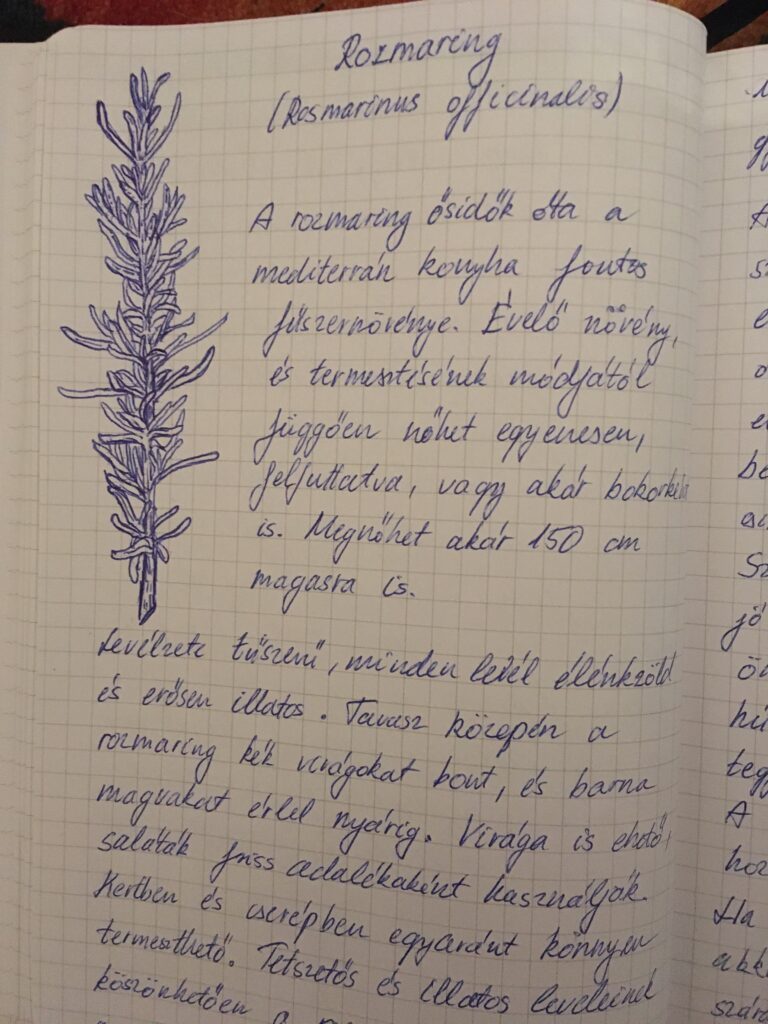 Rozmaring
(Rosmarinus officinalis)
A rozmaring ősidők óta a
mediterrán konyha fontos
fűszernövénye. Évelő növény,
és termesztésének módjától
függően nőhet egyenesen,
felfuttatva, vagy akár bokorként
is. Megnőhet akár 150 cm
magasra is.
Levélzete tűszerű, minden levél élénkzöld
és erősen illatos. Tavasz közepén a
rozmaring kék virágokat bont, és barna
magvakat érlel nyárig. Virága is ehető,
saláták friss adalékaként használják.
Kertben és cserépben egyaránt könnyen
termeszthető. Tetszetős és illatos leveleinek
köszönhetően a